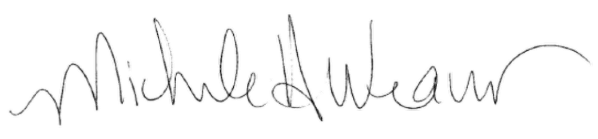 Michele H Weaver